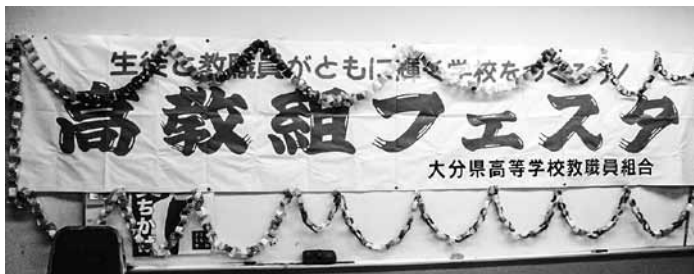 生徒と教職員がともに輝く学校をつくろう!
高教組フェスタ
大分県高等学校教職員組合